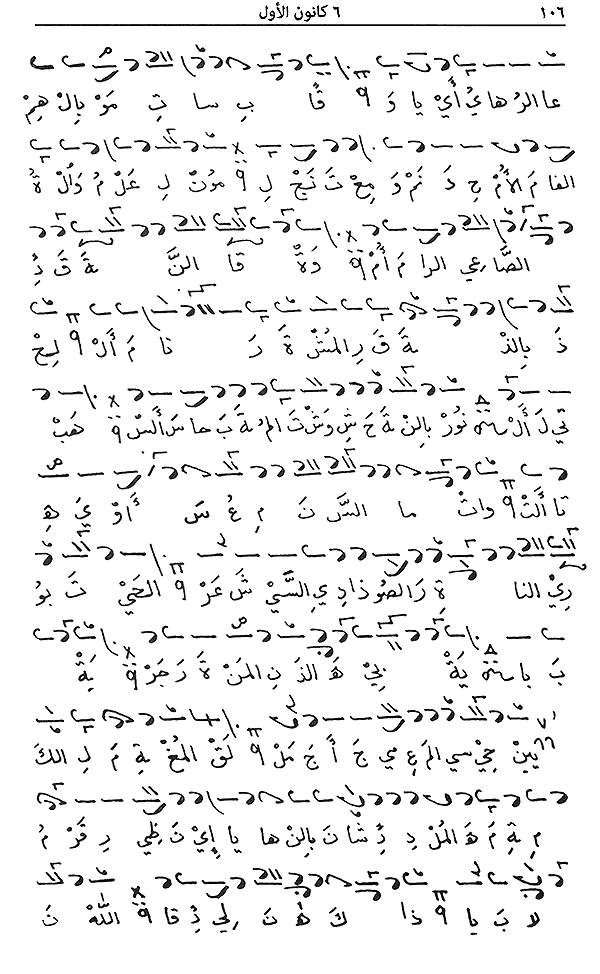 ١٠٦ ٦ كانون الأول
عا الرُ هايُ أَيْ يا دَ قًا بِ سا تِ مَوْ بِالْ هِمْ
الفا مَ الأُمْ حِ دَ نَمْ وَ مِعْ تَ نَجْ لِ مُوْنَ لِ عَلْ مُ وَالْ ةُ
الصَّا عي الرا مَ أُمْ وَةٌ قا النَّ ةَ قَ ذِ
ذَ بِالذْ ةَ قَ رِ المُشْ ةَ رَ نا مَ أَلْ لِحْ
تي لَ أَلْ نُوْرْ بِالنْ ةَ حَ شِ وَشْ تَ المُ ةَ بَ حا سَ أَلسْ هَبْ
تا أَلتْ واتْ ما السَّ نَ مِ عُ سَ أَوْ يَ هِ
رِيْ النا ةَ رَ الصُوْ ذا دِي السَّيْ شَ عَرْ الحَيْ تَ بوُ
بَ با يَةْ بِيْ هَ الذَ نِ المَنْ ةَ رَ جَرْ يَةْ
يِيْنْ حِيْ سي المَ عِ مي جَ أَ جَ مَلْ لَقْ المُغْ ةِ مَ لِ الكَ
مِ ةِ مَ هَ المُلْ دِ ذِ شَا نَ بِالنْ ها يا إِيْ نَ ظِي رِ قَرْ مُ
لا بَ يا ذا كَ هُنَ لِي ذِ قا اللهْ نَ